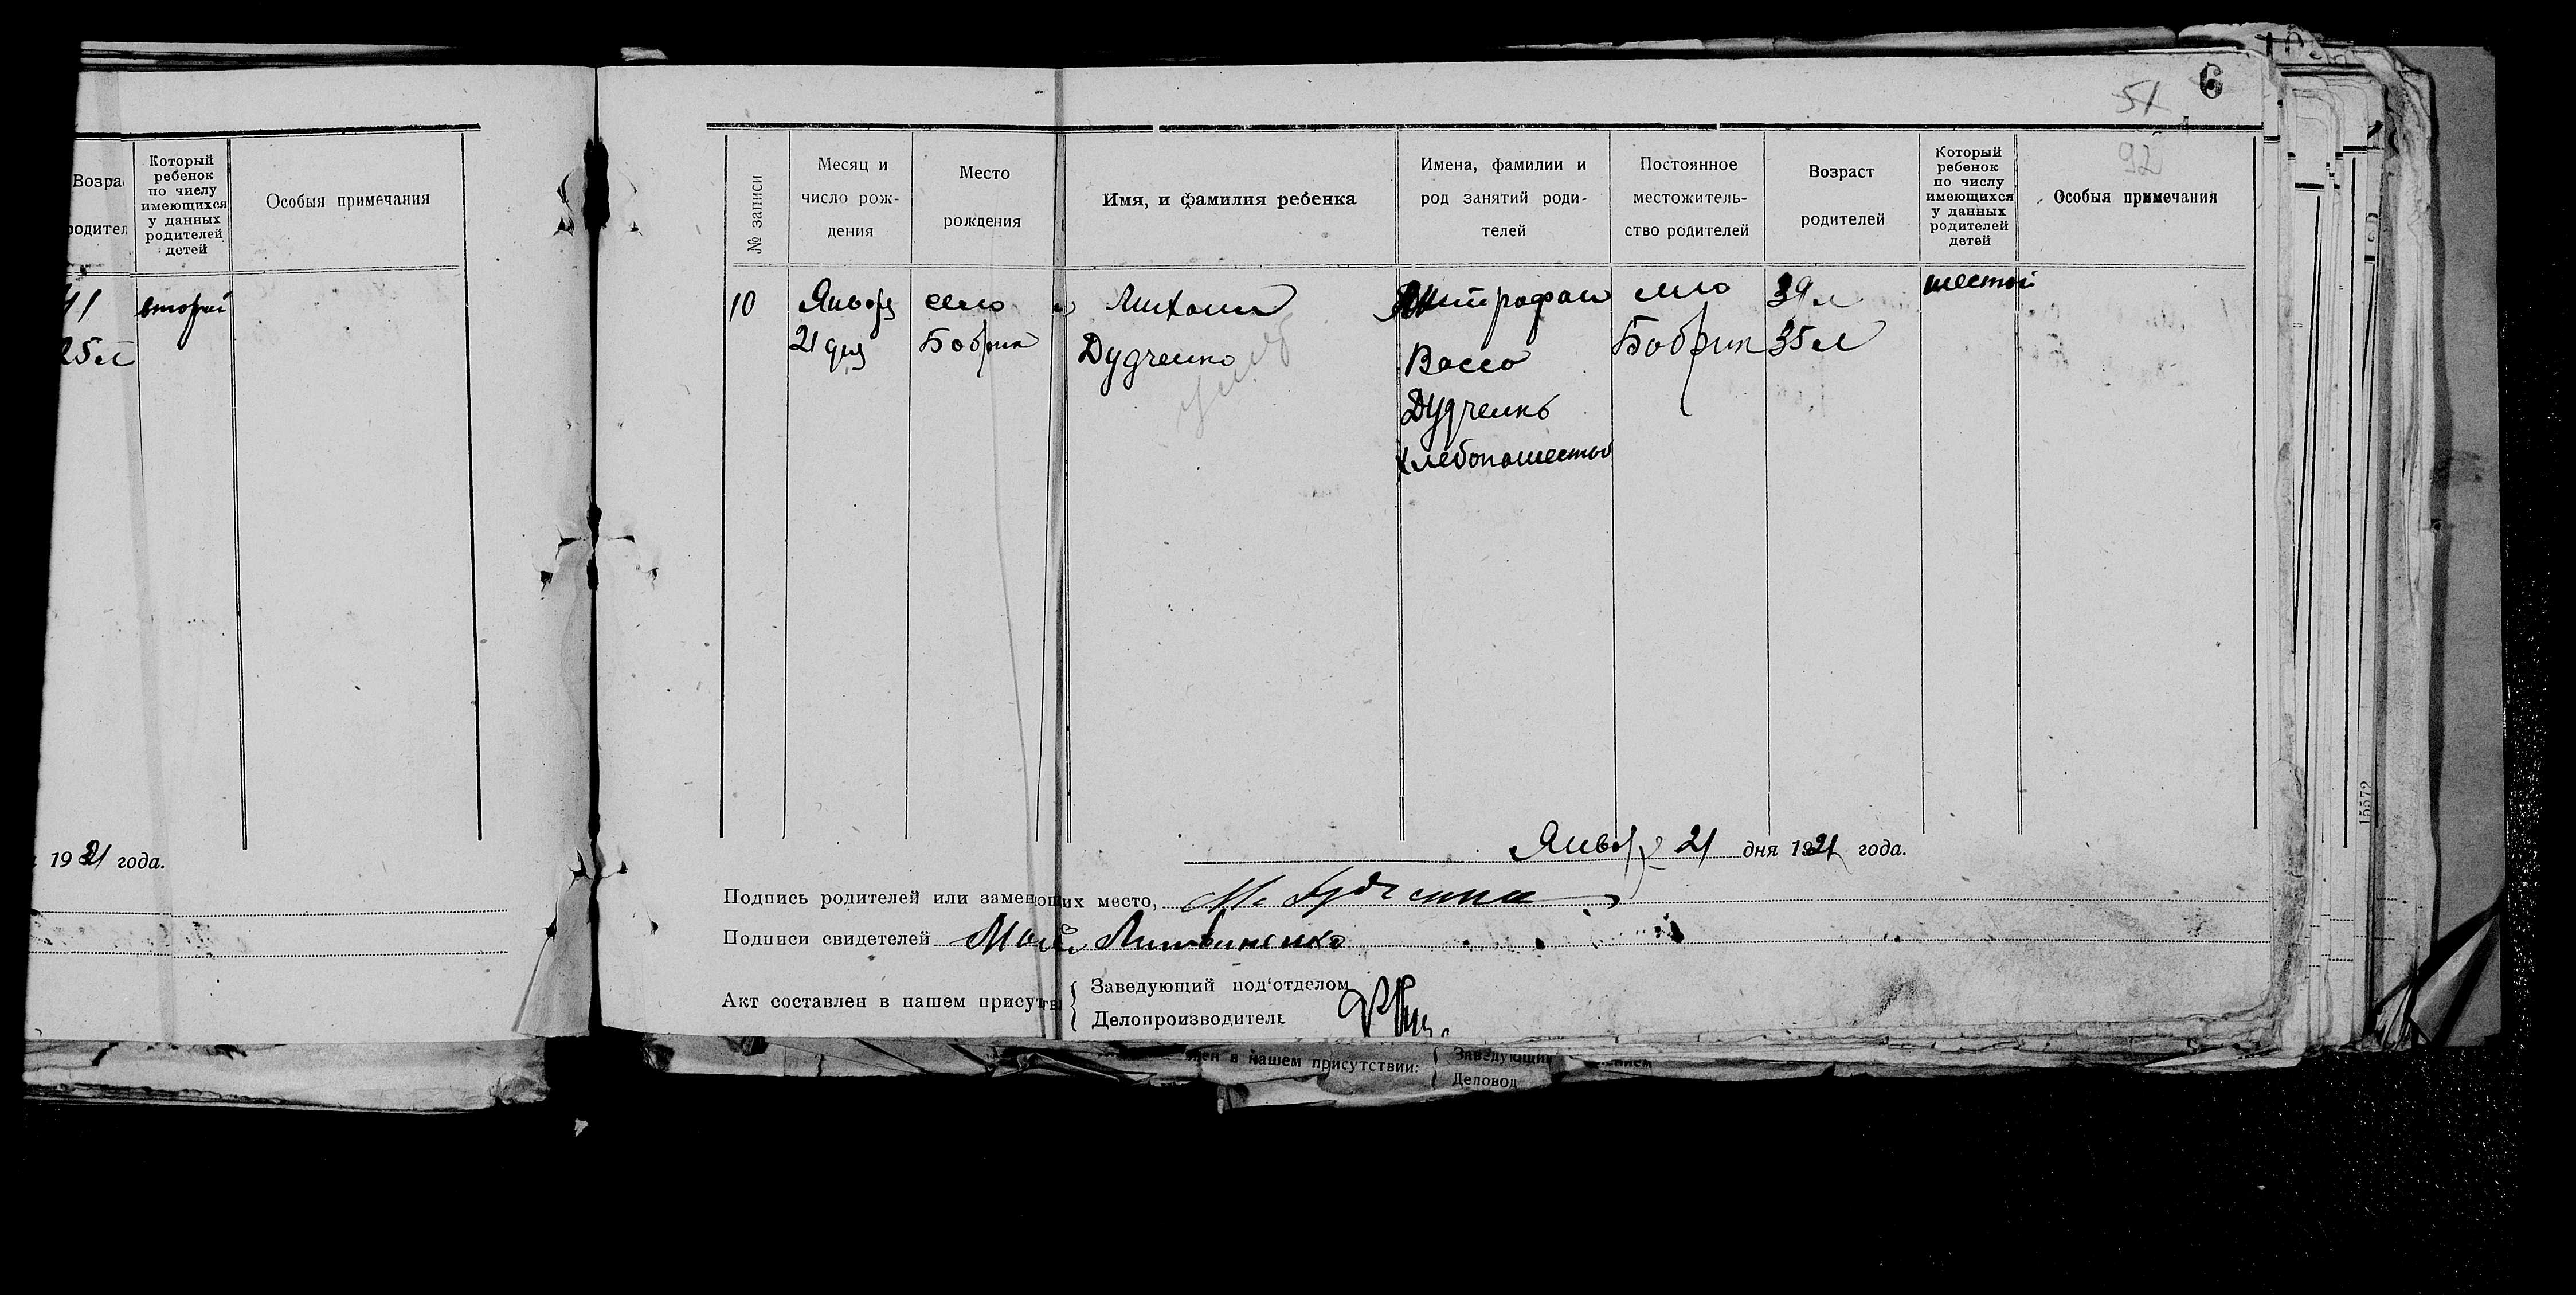 Возра
родител
Который
ребенок
по числу
имеющихся
у данных
родителей
детей
Особыя примечания
41
25 л
второй
1921 года.
6
51
92
№ записи
Месяц и
число рож-
дения
Место
рождения
Имя, и фамилия ребенка
Имена, фамилии и
род занятий роди-
телей
Постоянное
местожитель-
ство родителей
Возраст
родителей
Который
ребенок
по числу
имеющихся
у данных
родителей
детей
Особыя примечания
10
Января
21 дня
село
Бобрик
Михаил
Дудченко
умер
Митрофан
Васса
Дудченко
хлебопашество
село
Бобрик
39 л
35 л
шестой
Января 21 дня 1921 года.
Подпись родителей или заменющих место, М. Дудченко
Подписи свидетелей Литвиненко
Акт составлен в нашем присутстви
Заведующий под'отделом
Делопроизводитель
в нашем присутствии:
Заведующий
Деловод
15572